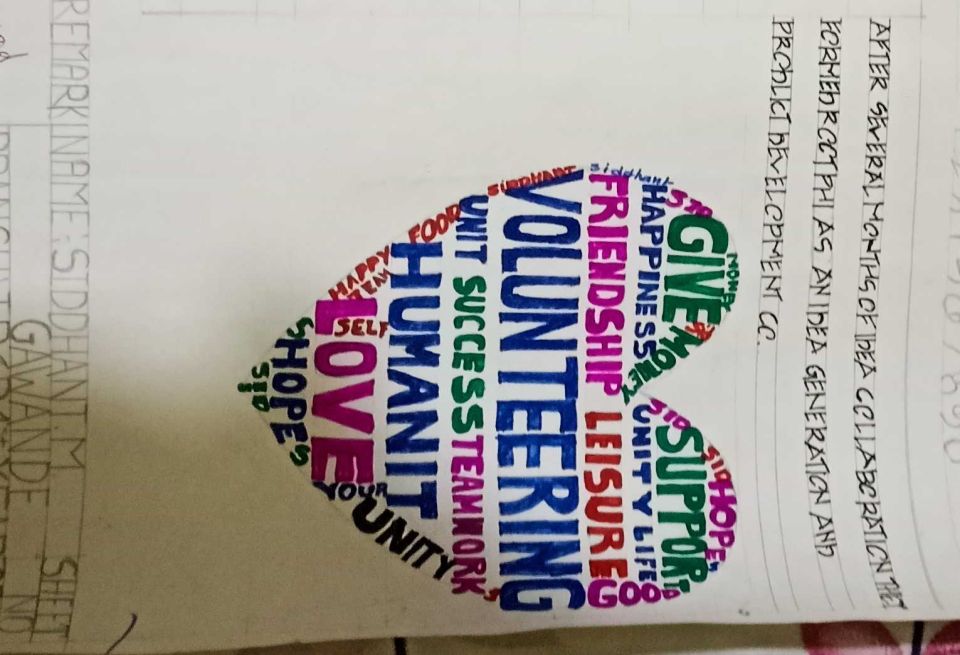 AFTER SEVERAL MONTHS OF IDEA COLLABORATION THEY
FORMED ROOTPHI AS AN IDEA GENERATION AND
PRODUCT DEVELOPMENT CO.
MONEY
SID HOPE'S
SID
GIVE
SUPPORT
SID
MONEY
siddhant
HAPPINESS
UNITY LIFE
FRIENDSHIP LEISURE GOOD
VOLUNTEERING
SIDDHANT
UNIT SUCCESS TEAMWORK'S
FOOD
HUMANIT
UNITY
HAPPY
TEAM
SELF
LOVE
YOUR
SHOPES
SID
REMARK NAME:- SIDDHANT.M
GAWANDE SHEET
NO